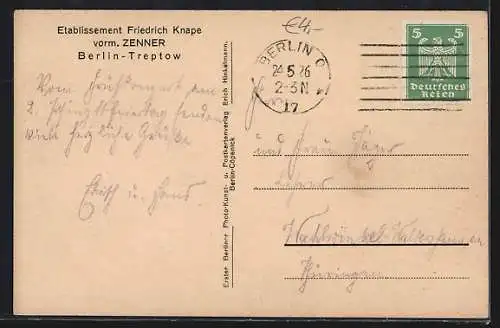 Etablissement Friedrich Knape
vorm. ZENNER
Berlin-Treptow
Vom Frühkonzert am
2. Pfingstfeiertag senden
viel herzliche Grüße
Erich u. Hans.
Erster Berliner Photo-Kunst- u. Postkartenverlag Erich Hinkelmann,
Berlin-Cöpenick
€4,-
BERLIN O
24 5 26
2-3 N
17
5 5
Deutsches
Reich
und Frau
Lehrer
Thüringen